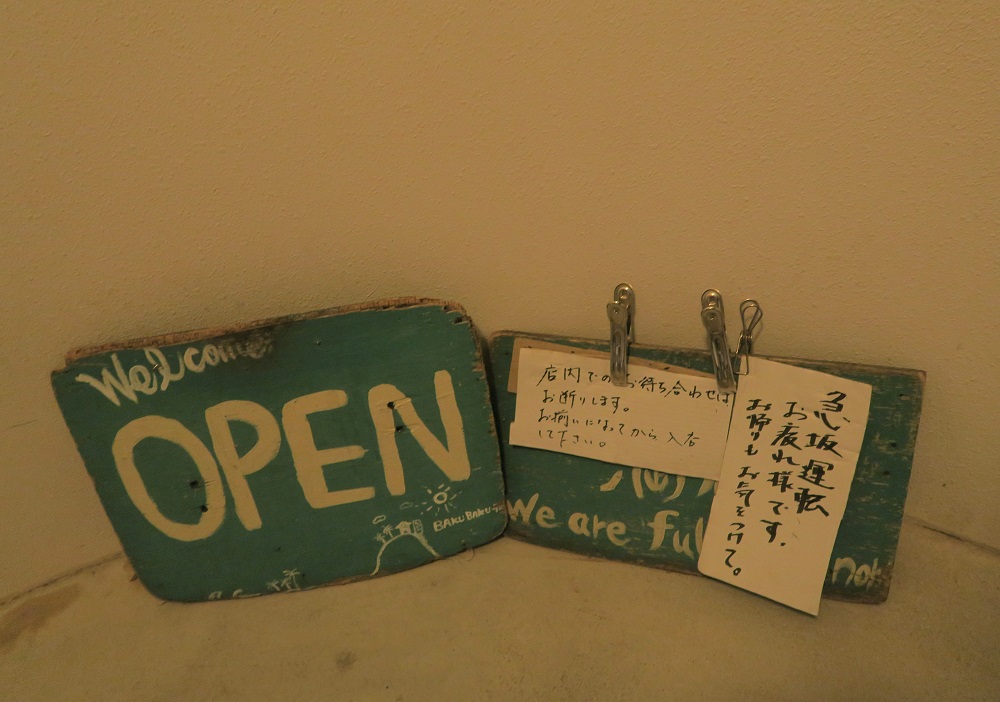 Welcome
OPEN
BAKU BAKU
店内でのお待ち合わせは
お断りします。
お揃いになってから入店
して下さい。
We are ful
not
急坂運転
お疲れ様です。
お帰りもお気をつけて。